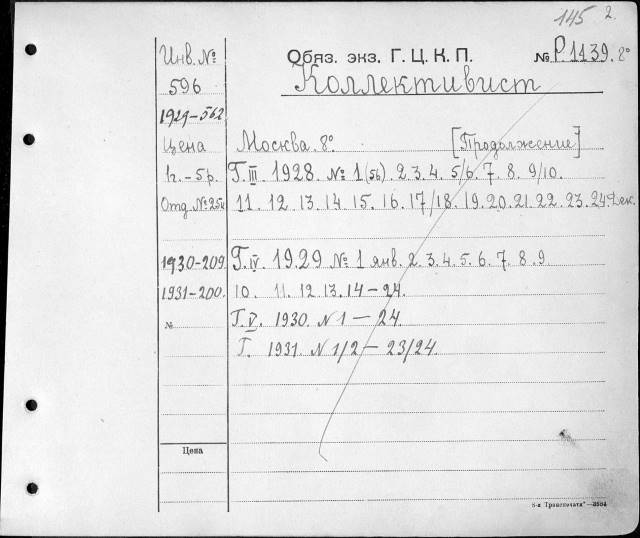 145 2.
Обяз. экз. Г. Ц. К. П. № Р.1139. 8°
Коллективист
Инв. №
596
1929–562
Цена
1г.–5р.
Отд. №
1930–209.
1931–200.
№
Цена
Москва. 8°. [Продолжение]
Г. III. 1928. № 1(56) 2. 3. 4. 5/6. 7. 8. 9/10.
11. 12. 13. 14. 15. 16. 17/18. 19. 20. 21. 22. 23. 24. Дек.
Г. IV. 1929 № 1 янв. 2. 3. 4. 5. 6. 7. 8. 9.
10. 11. 12. 13. 14–24.
Г. V. 1930. N 1 — 24.
Г. 1931. N 1/2 — 23/24.
8-я Транспечати"—3684